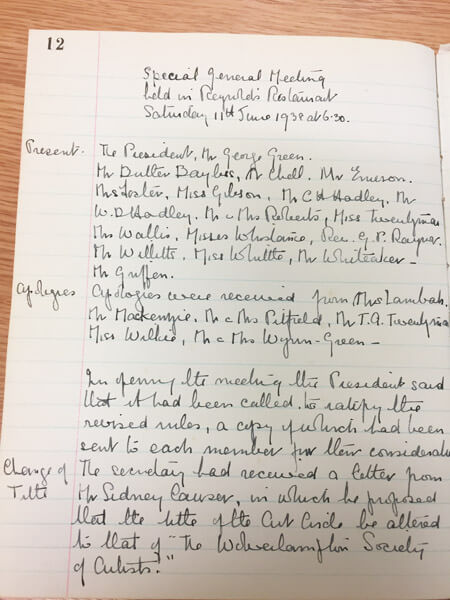 12
Special General Meeting
held in Reynolds Restaurant
Saturday 11th June 1938 at 6.30.
Present. The President, Mr George Green.
Mr Butler Bayliss, Mr Chell. Mr Emerson.
Mrs Foster, Miss Gibson, Mr C H Hadley, Mr
W.D Hadley, Mr & Mrs Roberts, Miss Twentyman
Mrs Wallis, Misses Whistance, Rev. G. P. Raynor.
Mr Willetts, Miss Whittle, Mr Whiteaker –
Mr Griffen.
Apologies Apologies were received from Mrs Lambah.
Mr Mackenzie, Mr & Mrs Pitfield, Mr T.A. Twentyman
Miss Wilkie, Mr & Mrs Wynn-Green –
In opening the meeting the President said
that it had been called to ratify the
revised rules, a copy of which had been
sent to each member for their
Change of The secretary had received a letter from
Title Mr Sidney Cawser, in which he proposed
that the title of the Art Circle be altered
to that of "The Wolverhampton Society
of Artists."